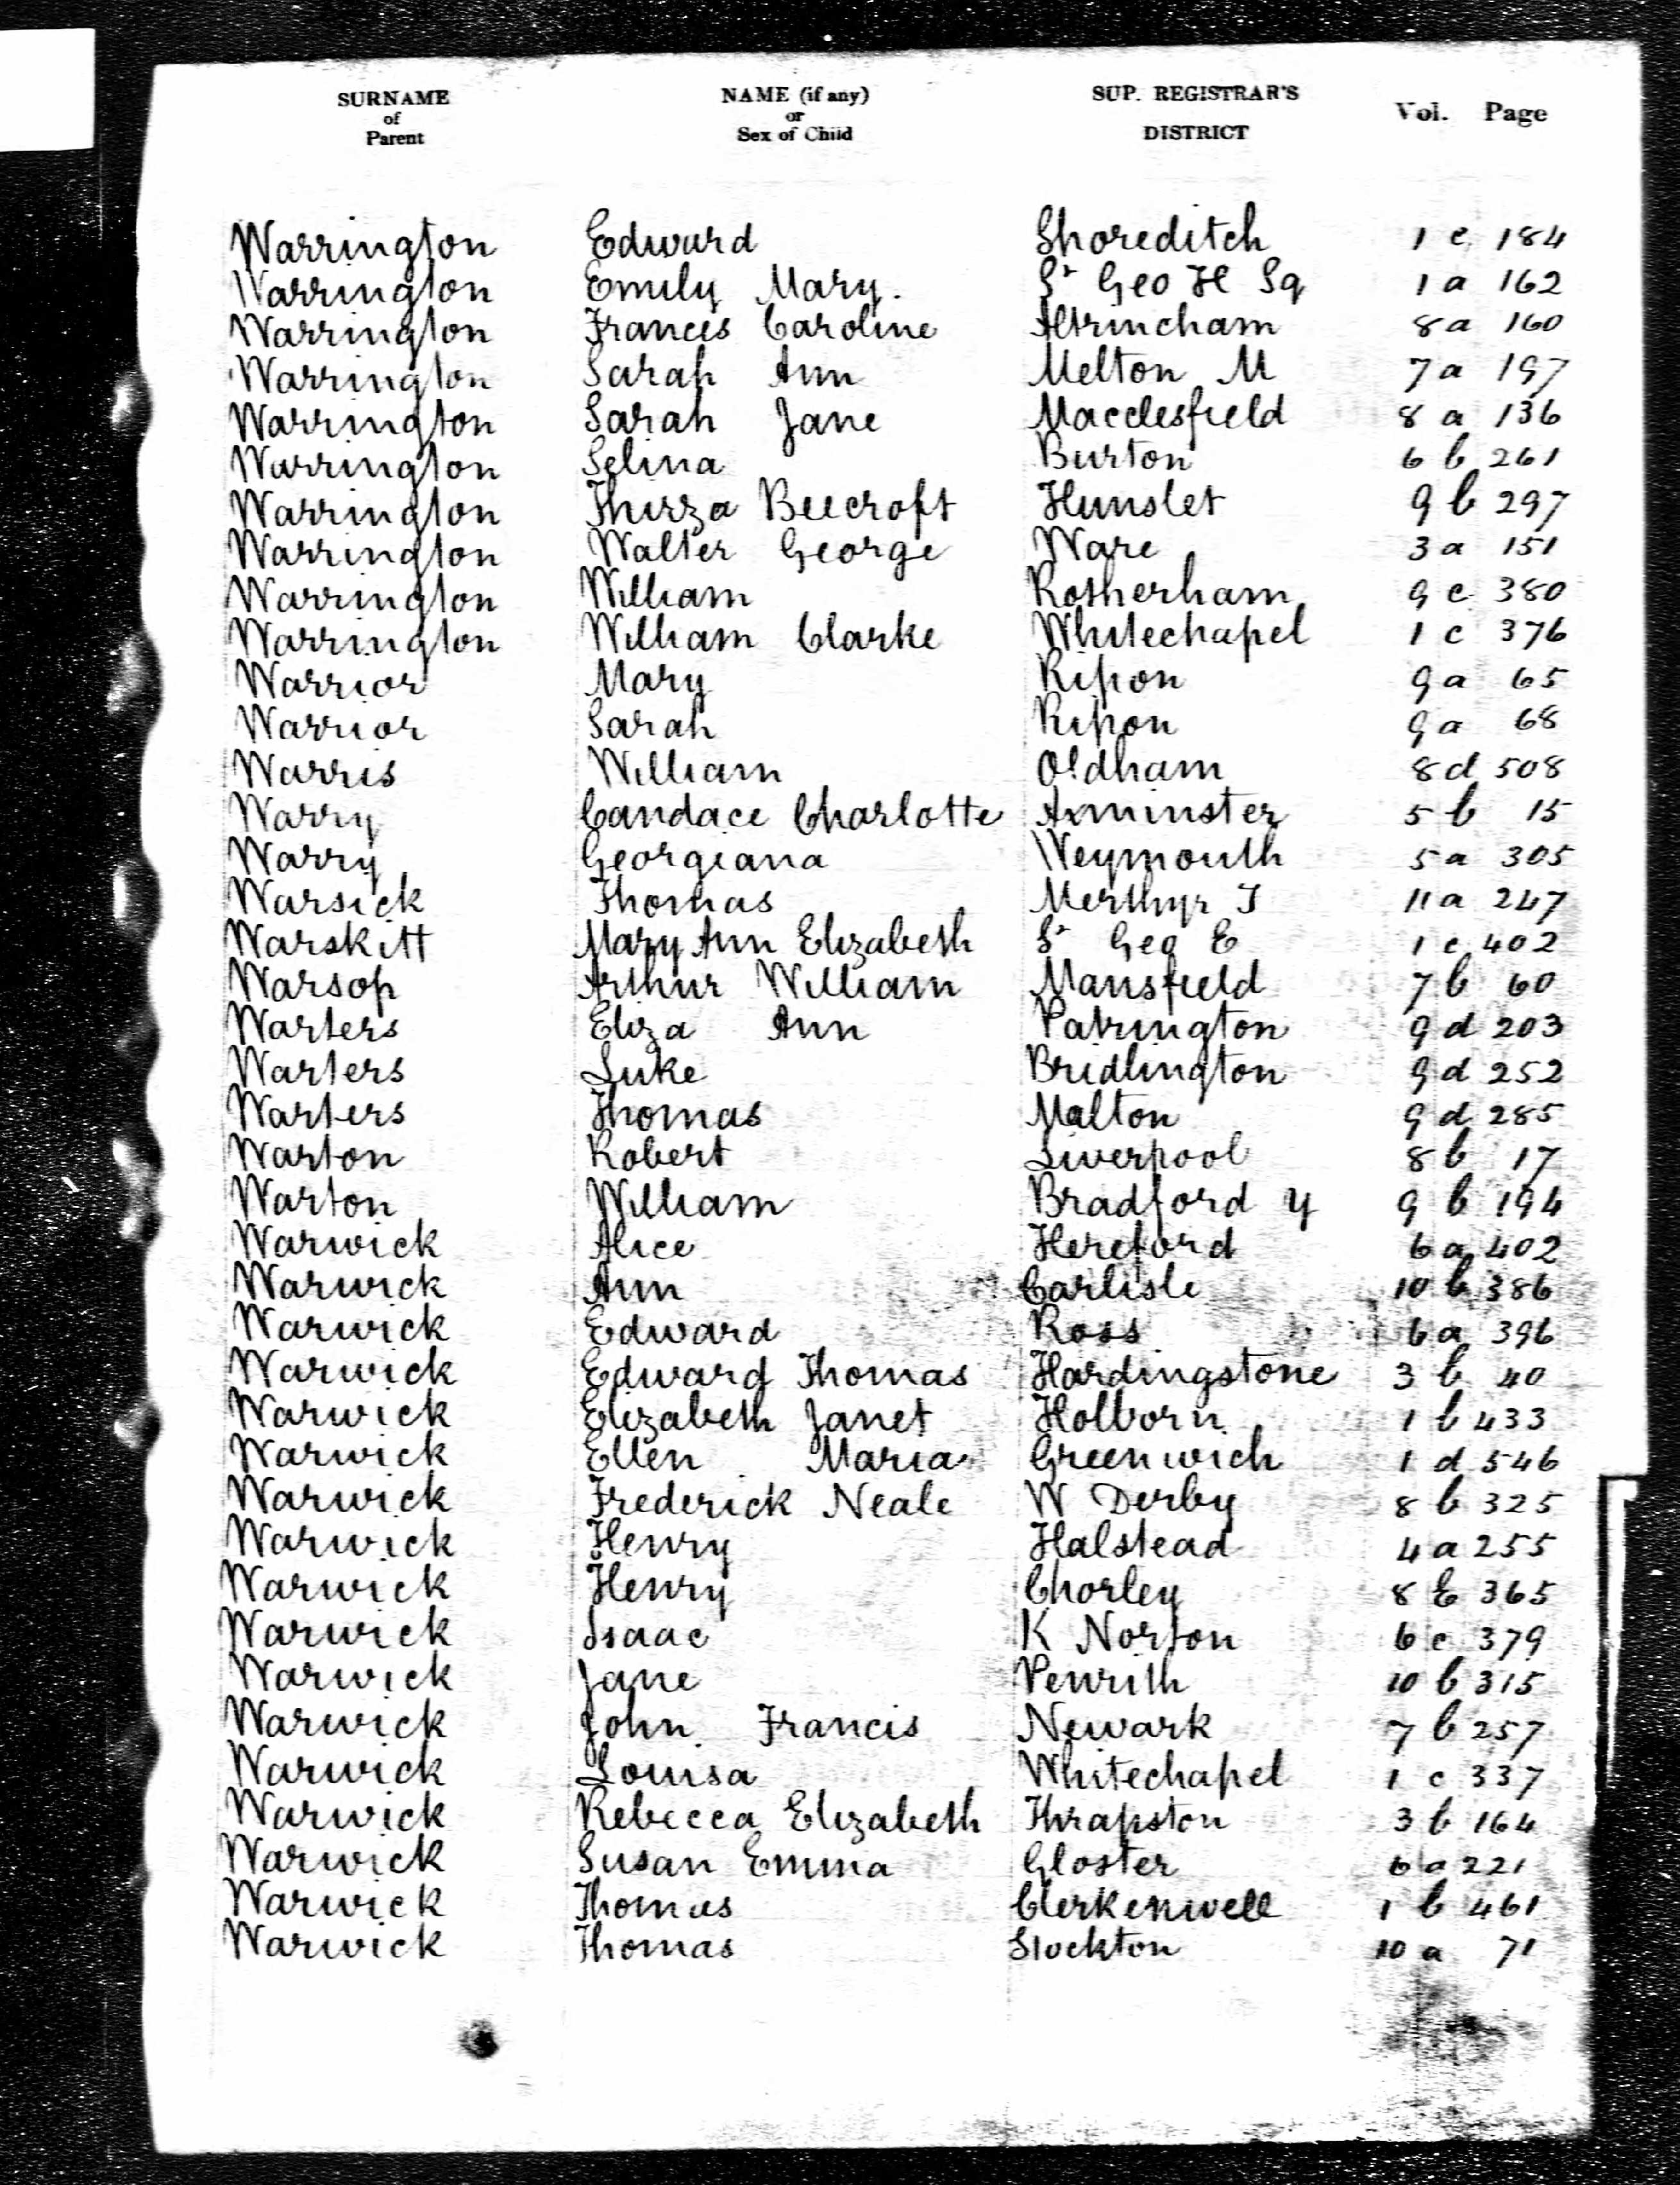 SURNAME of Parent NAME (if any) or Sex of Child SUP. REGISTRAR'S DISTRICT Vol. Page
Warrington Edward Shoreditch 1 c 184
Warrington Emily Mary. St Geo H Sq 1 a 162
Warrington Frances Caroline Altrincham 8 a 160
Warrington Sarah Ann Melton M 7 a 197
Warrington Sarah Jane Macclesfield 8 a 136
Warrington Selina Burton 6 b 261
Warrington Thirza Beecroft Hunslet 9 b 297
Warrington Walter George Ware 3 a 151
Warrington William Rotherham 9 c 380
Warrington William Clarke Whitechapel 1 c 376
Warrior Mary Ripon 9 a 65
Warrior Sarah Ripon 9 a 68
Warris William Oldham 8 d 508
Warry Candace Charlotte Axminster 5 b 15
Warry Georgiana Weymouth 5 a 305
Warsick Thomas Merthyr T 11 a 247
Warskitt Mary Ann Elizabeth St Geo E 1 c 402
Warsop Arthur William Mansfield 7 b 60
Warters Eliza Ann Patrington 9 d 203
Warters Luke Bridlington 9 d 252
Warters Thomas Malton 9 d 285
Warton Robert Liverpool 8 b 17
Warton William Bradford Y 9 b 194
Warwick Alice Hereford 6 a 402
Warwick Ann Carlisle 10 b 386
Warwick Edward Ross 6 a 396
Warwick Edward Thomas Hardingstone 3 b 40
Warwick Elizabeth Janet Holborn 1 b 433
Warwick Ellen Maria Greenwich 1 d 546
Warwick Frederick Neale W Derby 8 b 325
Warwick Henry Halstead 4 a 255
Warwick Henry Chorley 8 E 365
Warwick Isaac K Norton 6 c 379
Warwick Jane Penrith 10 b 315
Warwick John Francis Newark 7 b 257
Warwick Louisa Whitechapel 1 c 337
Warwick Rebecca Elizabeth Thrapston 3 b 164
Warwick Susan Emma Gloster 6 a 221
Warwick Thomas Clerkenwell 1 b 461
Warwick Thomas Stockton 10 a 71